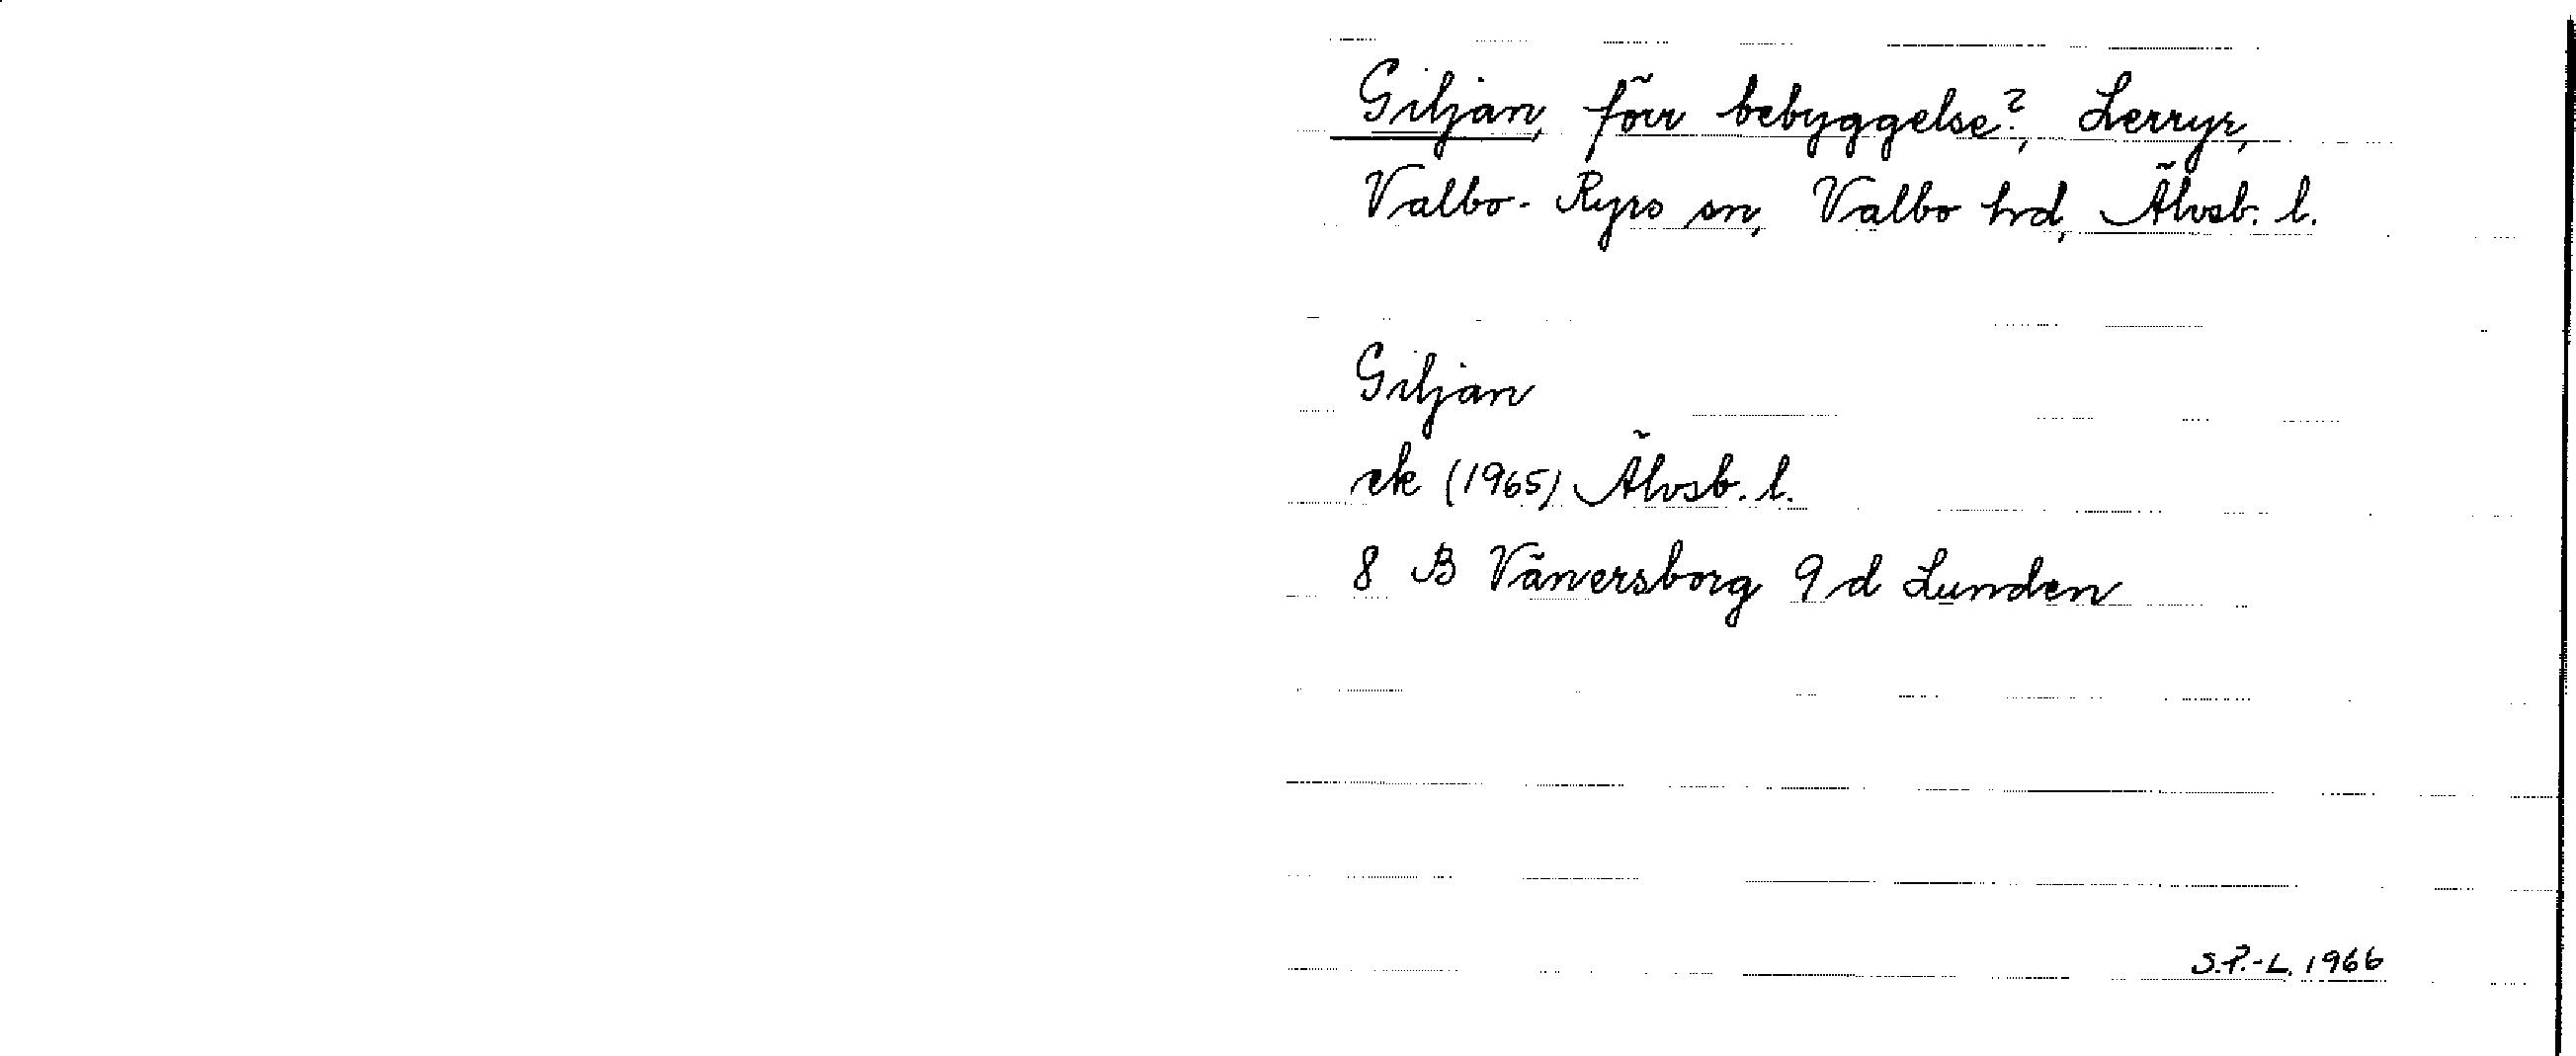 Giljan, förr bebyggelse?, Lerryr,
Valbo-Ryrs sn, Valbo hd, Älvsb. l.
Giljan
ek (1965) Älvsb. l.
8 B Vänersborg 9 d Lunden
S.P.-L. 1966